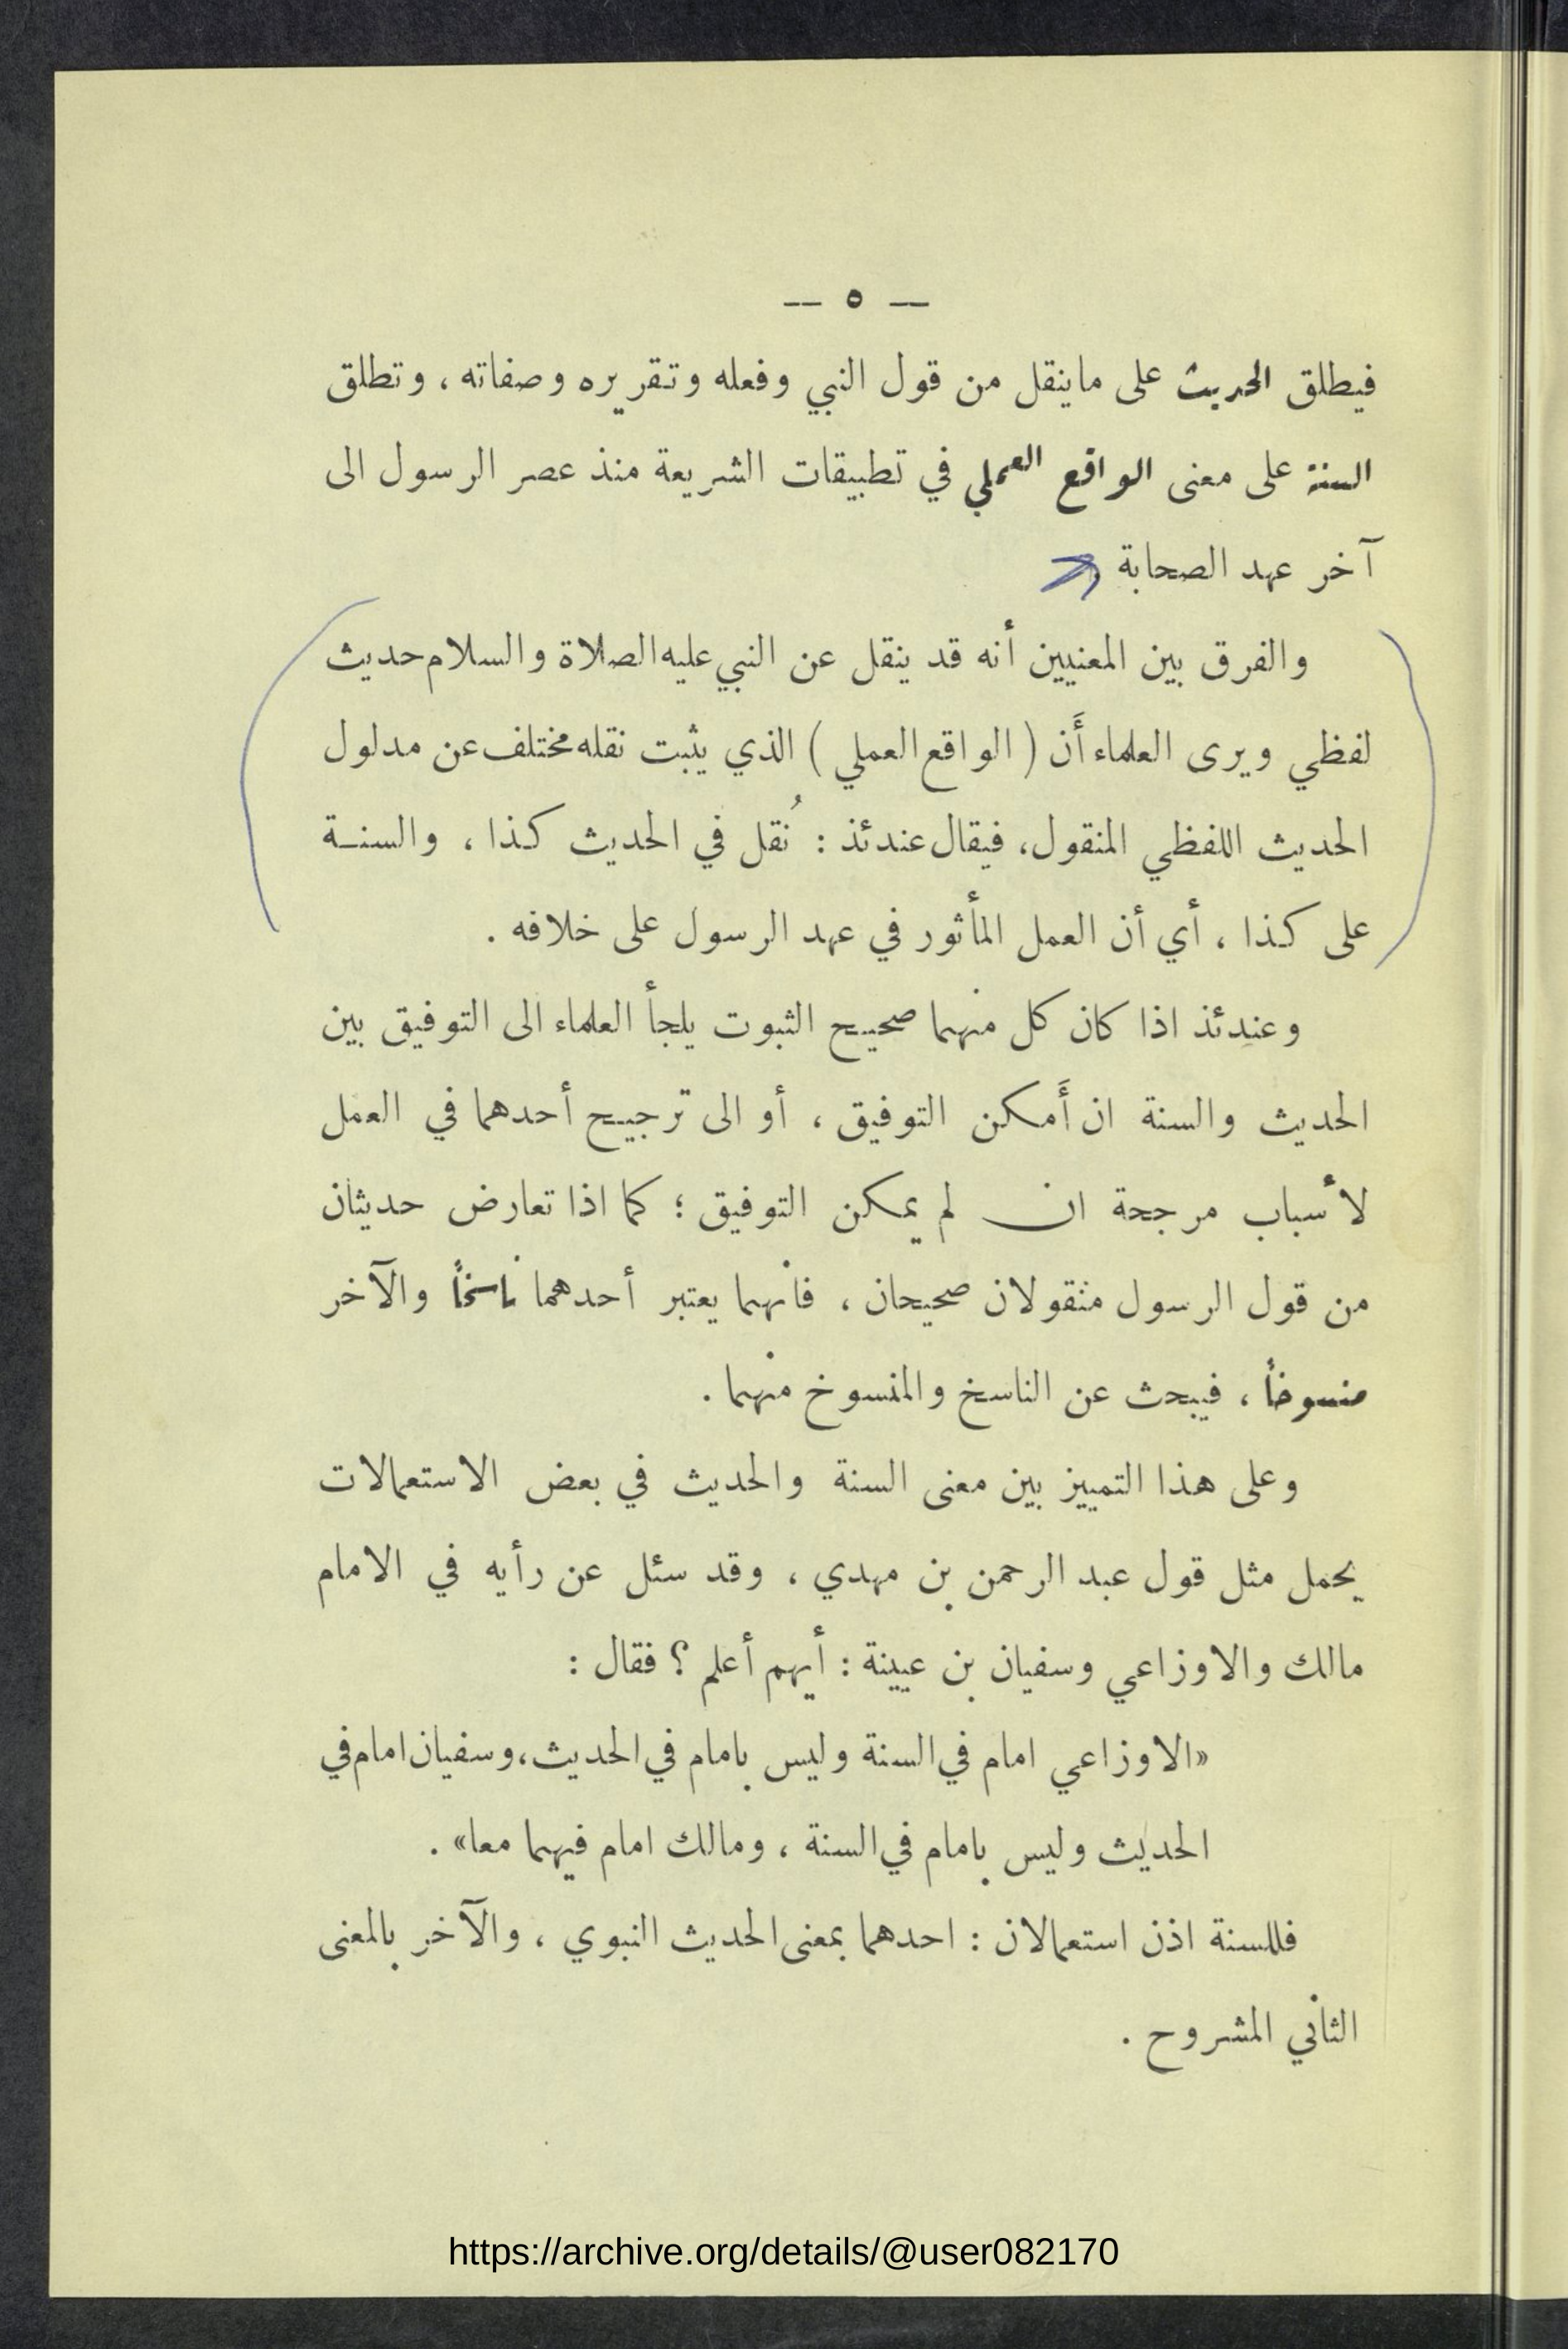 — ٥ —
فيطلق الحديث على ماينقل من قول النبي وفعله وتقريره وصفاته ، وتطلق
السنة على معنى الواقع العملي في تطبيقات الشريعة منذ عصر الرسول الى
آخر عهد الصحابة
والفرق بين المعنيين أنه قد ينقل عن النبي عليه الصلاة والسلام حديث
لفظي ويرى العلماء أَن ( الواقع العملي ) الذي يثبت نقله مختلف عن مدلول
الحديث اللفظي المنقول، فيقال عندئذ : نُقل في الحديث كذا ، والسنـة
على كذا ، أي أن العمل المأثور في عهد الرسول على خلافه .
وعندئذ اذا كان كل منهما صحيح الثبوت يلجأ العلماء الى التوفيق بين
الحديث والسنة ان أَمكن التوفيق ، أو الى ترجيح أحدهما في العمل
لأسباب مرجحة ان لم يمكن التوفيق ؛ كما اذا تعارض حديثان
من قول الرسول منقولان صحيحان ، فانهما يعتبر أحدهما ناسخاً والآخر
منسوخاً ، فيبحث عن الناسخ والمنسوخ منهما .
وعلى هذا التمييز بين معنى السنة والحديث في بعض الاستعمالات
يحمل مثل قول عبد الرحمن بن مهدي ، وقد سئل عن رأيه في الامام
مالك والاوزاعي وسفيان بن عيينة : أيهم أعلم ؟ فقال :
«الاوزاعي امام في السنة وليس بامام في الحديث، وسفيان امام في
الحديث وليس بامام في السنة ، ومالك امام فيهما معا» .
فللسنة اذن استعمالان : احدهما بمعنى الحديث النبوي ، والآخر بالمعنى
الثاني المشروح .
https://archive.org/details/@user082170